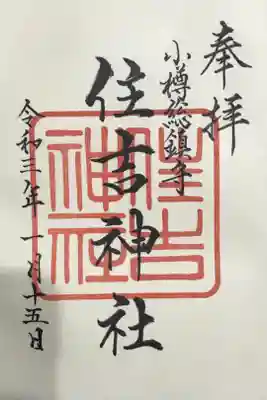 奉拝
小樽総鎮守
住吉神社
住吉神社
令和三年 一月十五日